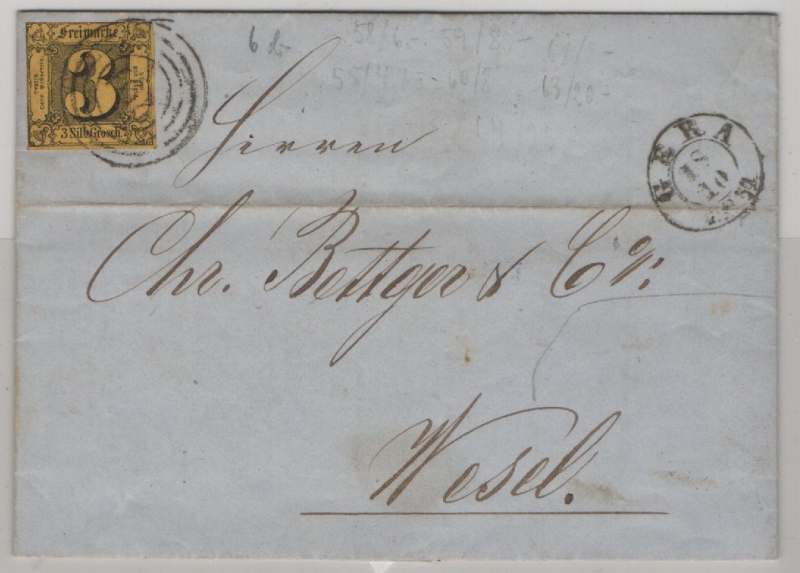 Freimarke
3
3 Silb. Grosch.
6 d-
58/6.- 59/8-
55/4 60/8
63/20-
GERA
18
10
Herren
Chr. Bettger & Co:
Wesel.